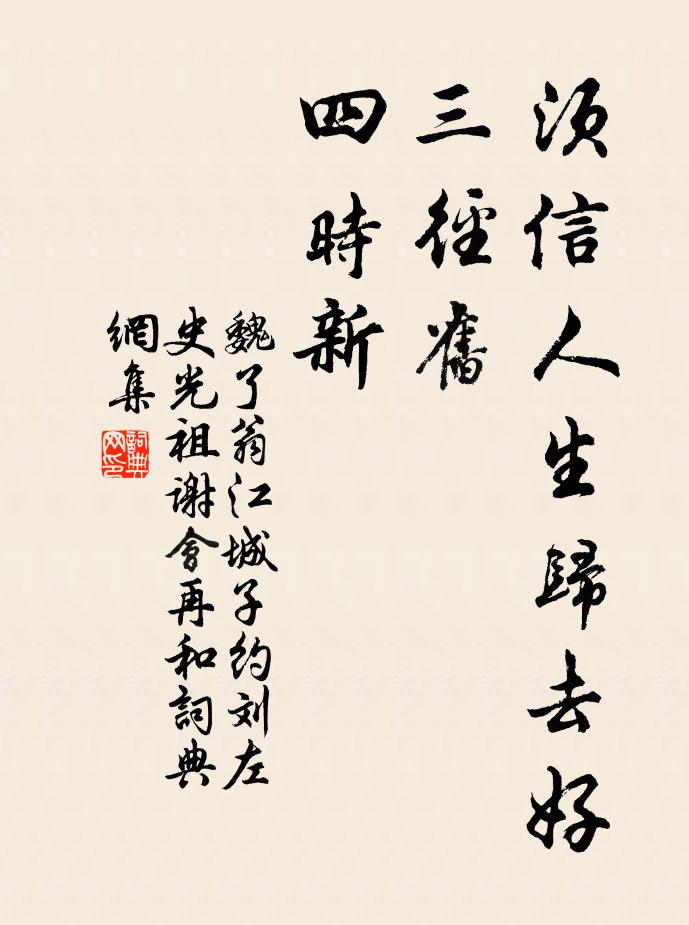 須信人生歸去好
三徑舊
四時新
魏了翁江城子约刘左
史光祖谢會再和詞典
網集
詞典
网印